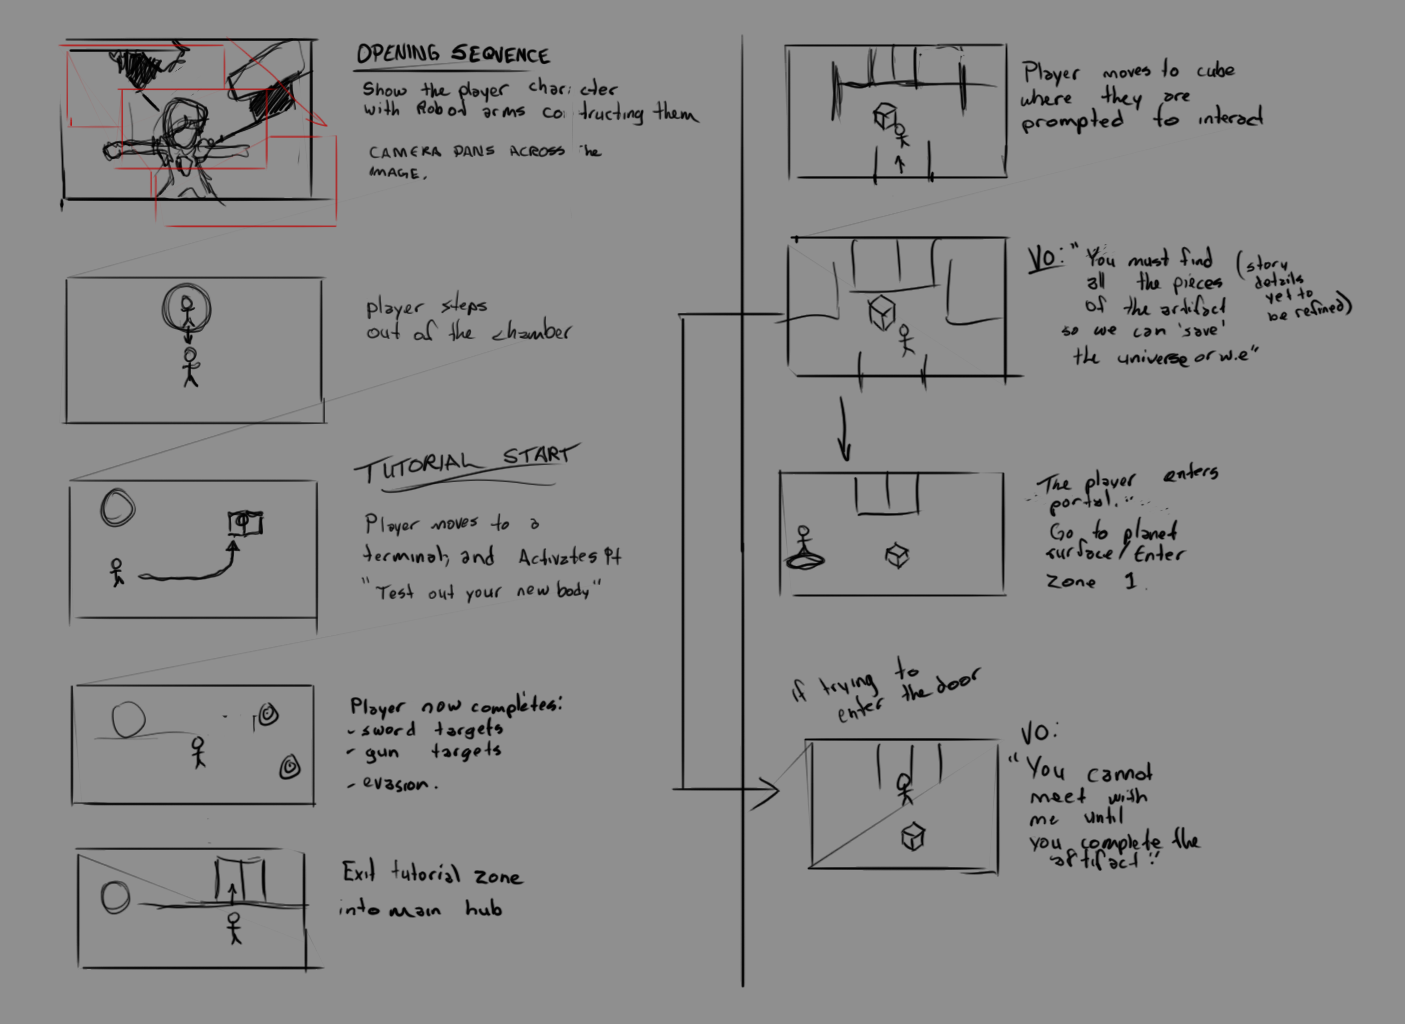 OPENING SEQUENCE
Show the player character
with Robot arms constructing them
CAMERA PANS ACROSS the
IMAGE.
player steps
out of the chamber
TUTORIAL START
Player moves to a
terminal, and Activates it
"Test out your new body"
Player now completes:
- sword targets
- gun targets
- evasion.
Exit tutorial zone
into main hub
Player moves to cube
where they are
prompted to interact
VO: "You must find
all the pieces
of the artifact
so we can 'save'
the universe or w.e"
(story
details
yet to
be refined)
The player enters
portal.
Go to planet
surface/Enter
zone 1.
if trying to
enter the door
VO:
"You cannot
meet with
me until
you complete the
artifact."